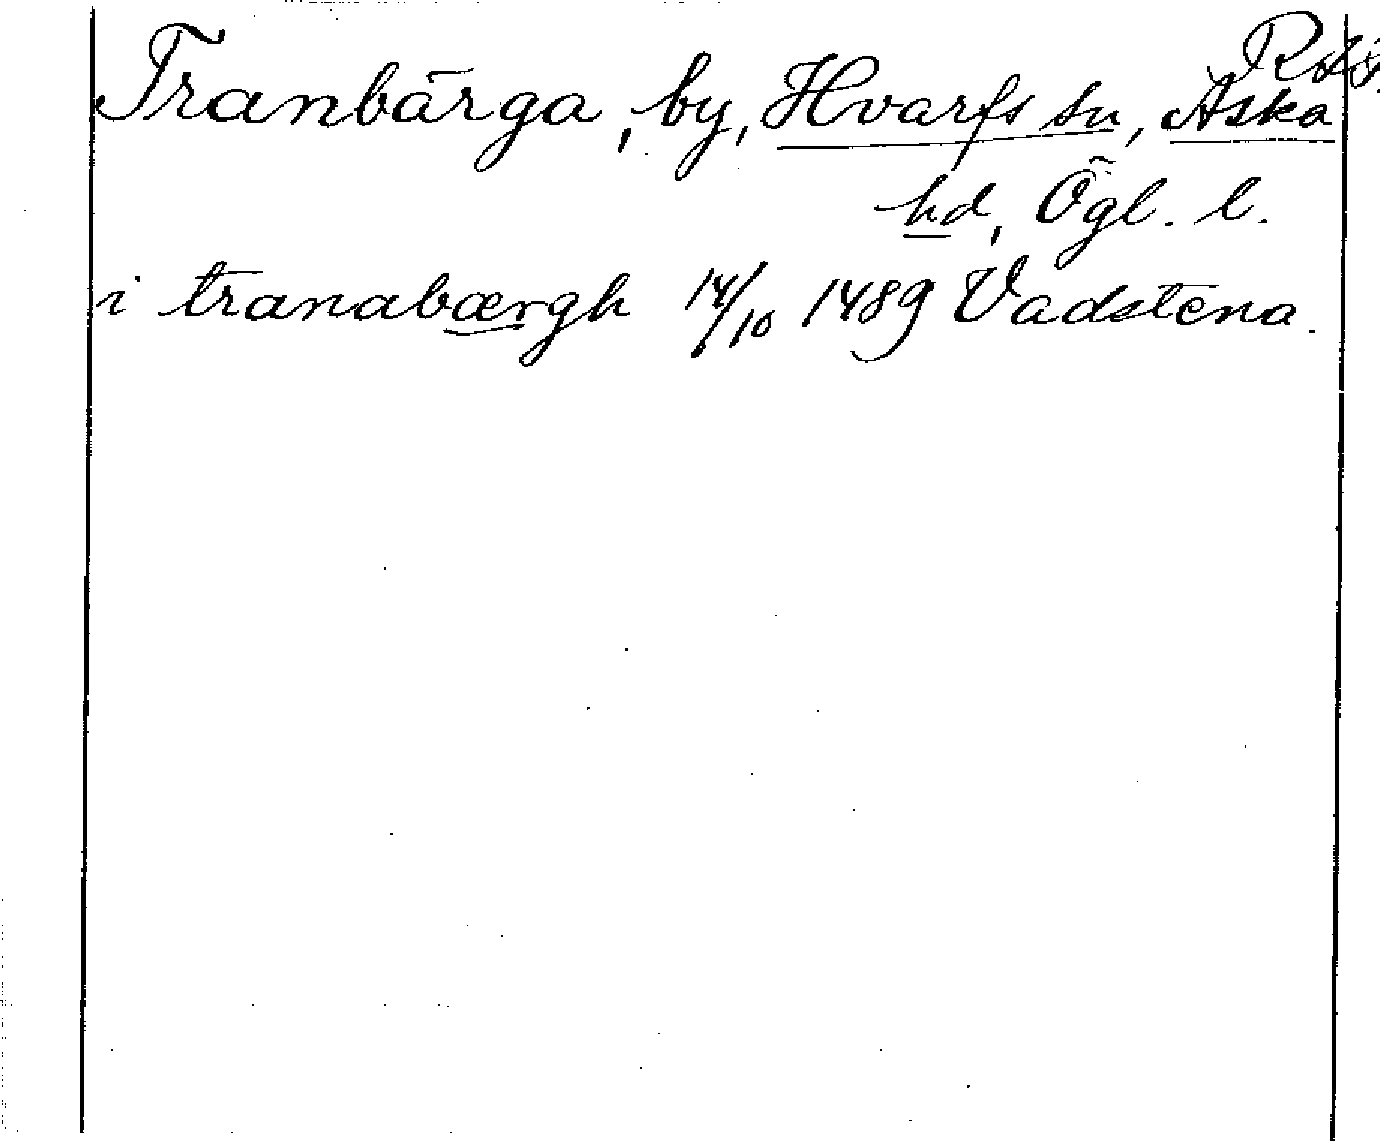 RAS.
Tranbärga, by, Hvarfs sn, Aska
hd, Ögl. l.
i tranabærgh 14/10 1489 Vadstena.